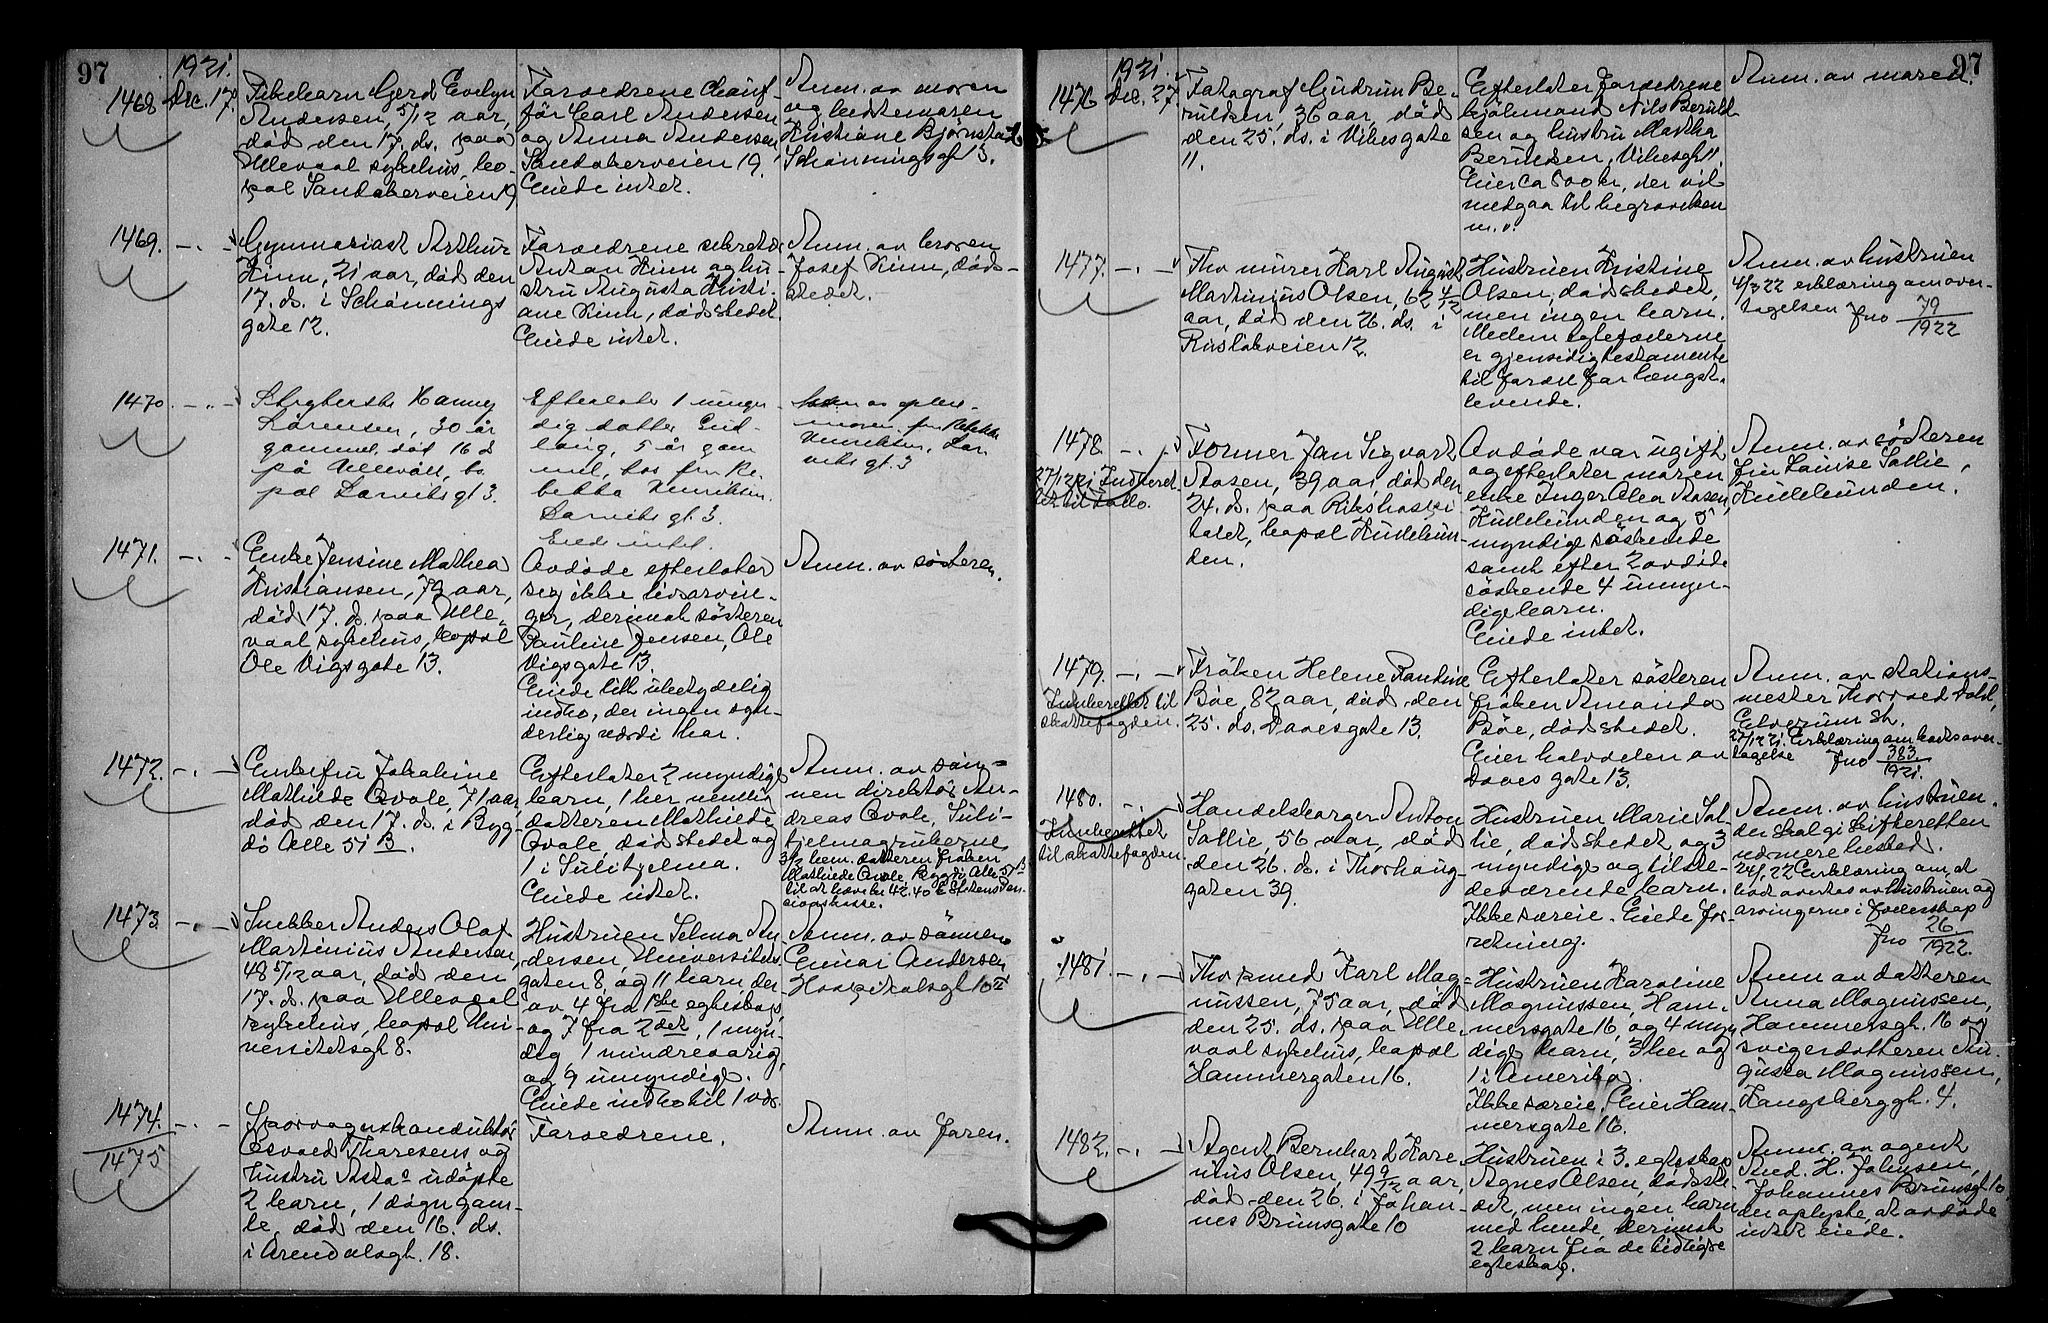 97
1921.
1468 Dec. 17.
Pikebarn Gerd Evelyn
Andersen, 5/12 aar,
død den 17. ds. paa
Ullevaal sykehus, bo-
pæl Sandakerveien 19
Forældrene Chauf-
før Carl Andersen
og Anna Andersen
Sandakerveien 19.
Eiede intet.
Anm. av moren
og bestemoren
Kristiane Bjørnstad
Schønningsgt 13.
1469. -.-
Gymnasiast Arthur
Kinn, 21 aar, død den
17. ds. i Schønnings
gate 12.
Forældrene sekretær
Anton Kinn og hu-
stru Augusta Kristi-
ane Kinn, dødsstedet.
Eiede intet.
Anm. av broren
Josef Kinn, døds-
stedet.
1470. -.-
Hanney
Sørensen, 30 år
gammel, død 16 ds
på Ullevål, bo-
pæl Larviks gt 3.
Efterlater 1 umyn-
dig datter
5 år gam
mel, hos fru Re-
bekka Henriksen
Larviks gt. 3.
Eiede intet.
Anm. av
moren fru Rebekka
Henriksen, Lar-
viks gt. 3
1471. -.-
Enke Jensine Mathea
Kristiansen, 72 aar,
død 17. ds. paa Ulle-
vaal sykehus, bopæl
Ole Vigsgate 13.
Avdøde efterlater
sig ikke livsarvin-
ger, derimot søsteren
Pauline Jensen, Ole
Vigsgate 13.
Eiede litt ubetydelig
indbo, der ingen syn-
derlig værdi har.
Anm. av søsteren.
1472. -.-
Enkefru Johanne
Mathilde Qvale, 71 aar,
død den 17. ds. i Byg-
dø Alle 51 B.
Efterlater 2 myndige
barn, 1 her nemlig
datteren Mathilde
Qvale, dødsstedet og
1 i Sulitjelma.
Eiede intet.
Anm. av søn-
nen direktør An-
dreas Qvale, Suli-
tjelmagruberne
3/2 bem. datteren frøken
Mathilde Qvale, Bygdø Alle 51B
til at hæve kr 42.40 i Statens Pen-
sionskasse.
1473. -.-
Snekker Anders Olaf
Martinius Andersen,
48 5/12 aar, død den
17. ds. paa Ullevaal
sykehus, bopæl Uni-
versitetsgt 8.
Hustruen Selma An-
dersen, Universitets-
gaten 8, og 11 barn, der-
av 4 fra 1ste egteskap,
og 7 fra 2det, 1 myn-
dig 1 mindreaarig,
og 9 umyndige.
Eiede indbo til 1 vær.
Anm. av sønnen
Einar Andersen
Hospitalsgt 10 II
1474. -.-
1475
Sporvognskonduktør
Osvald Thoresens og
hustru Astas udøpte
2 barn, 1 døgn gam-
le, død den 16. ds.
i Arendalsgt. 18.
Forældrene.
Anm. av faren.
97
1921.
1476 Dec. 27.
Fotograf Gudrun Be-
rulsen, 36 aar, død
den 25. ds. i Vibesgate
11.
Efterlater forældrene
hjulmand Nils Beruld-
sen og hustru Martha
Berulsen, Vibesgt 11.
Eier ca 500 kr, der vil
medgaa til begravelsen
m.v.
Anm. av moren.
1477. -.-
Fhv murer Karl August
Martinius Olsen, 62 4/12
aar, død den 26. ds. i
Rusløkveien 12.
Hustruen Kristine
Olsen, dødsstedet,
men ingen barn.
Mellem egtefællerne
er gjensidig testamente
til fordel for længst-
levende.
Anm. av hustruen
4/3 22 erklæring om over-
tagelsen Jno 79/1922
1478. -.-
27/12 21 Indberet-
tet til Follo.
Former Jan Sigvart
Aasen, 39 aar, død den
24. ds. paa Rikshospi-
talet, bopæl Kullebun-
den.
Avdøde var ugift
og efterlater moren
enke Inger Olea Aasen,
Kullebunden og 5
myndige søskende
samt efter 2 avdøde
søskende 4 umyn-
dige barn.
Eiede intet.
Anm. av søsteren
fru Louise Sollie,
Kullebunden.
1479. -.-
Innberettet til
skattefogden.
Frøken Helene Randine
Bøe, 82 aar, død den
25. ds. Dovesgate 13.
Efterlater søsteren
frøken Amanda
Bøe, dødsstedet.
Eier halvdelen av
Doves gate 13.
Anm. av stations-
mester Thorvald Dahl,
Elverum st.
27/12 21. Erklæring om boets over-
tagelse Jno 383/1921.
1480. -.-
Innberettet
til skattefogden
Handelsborger Anton
Sollie, 56 aar, død
den 26. ds. i Thorhaug-
gaten 39.
Hustruen Marie Sol-
lie, dødsstedet og 3
myndige og tilste-
deværende barn.
Ikke særeie. Eiede for-
retning.
Anm. av hustruen.
der skal gi skifteretten
nærmere besked.
24/1 22 Erklæring om, at
boet overtas av hustruen og
arvingerne i fælesskap
Jno 26/1922.
1481. -.-
Fhv Karl Mag-
nussen, 75 aar, død
den 25. ds. paa Ulle-
vaal sykehus, bopæl
Hammergaten 16.
Hustruen Karoline
Magnussen, Ham-
mersgate 16, og 4 myn-
dige barn, 3 her og
1 i Amerika.
Ikke særeie. Eier Ham-
mersgate 16.
Anm av datteren
Anna Magnussen,
Hammersgt. 16 og
svigerdatteren Au-
gusta Magnussen,
Kongsberggt. 4.
1482. -.-
Agent Bernhard Kare-
nius Olsen, 49 9/12 aar,
død den 26. i Johan-
nes Brunsgate 10
Hustruen i 3. egteskap
Agnes Olsen, dødsste-
det, men ingen barn
med hende, derimot
2 barn fra de tidligere
egteskap.
Anm. av agent
And. H. Johnsen,
Johannes Brunsgt. 10
der oplyste, at avdøde
intet eiede.